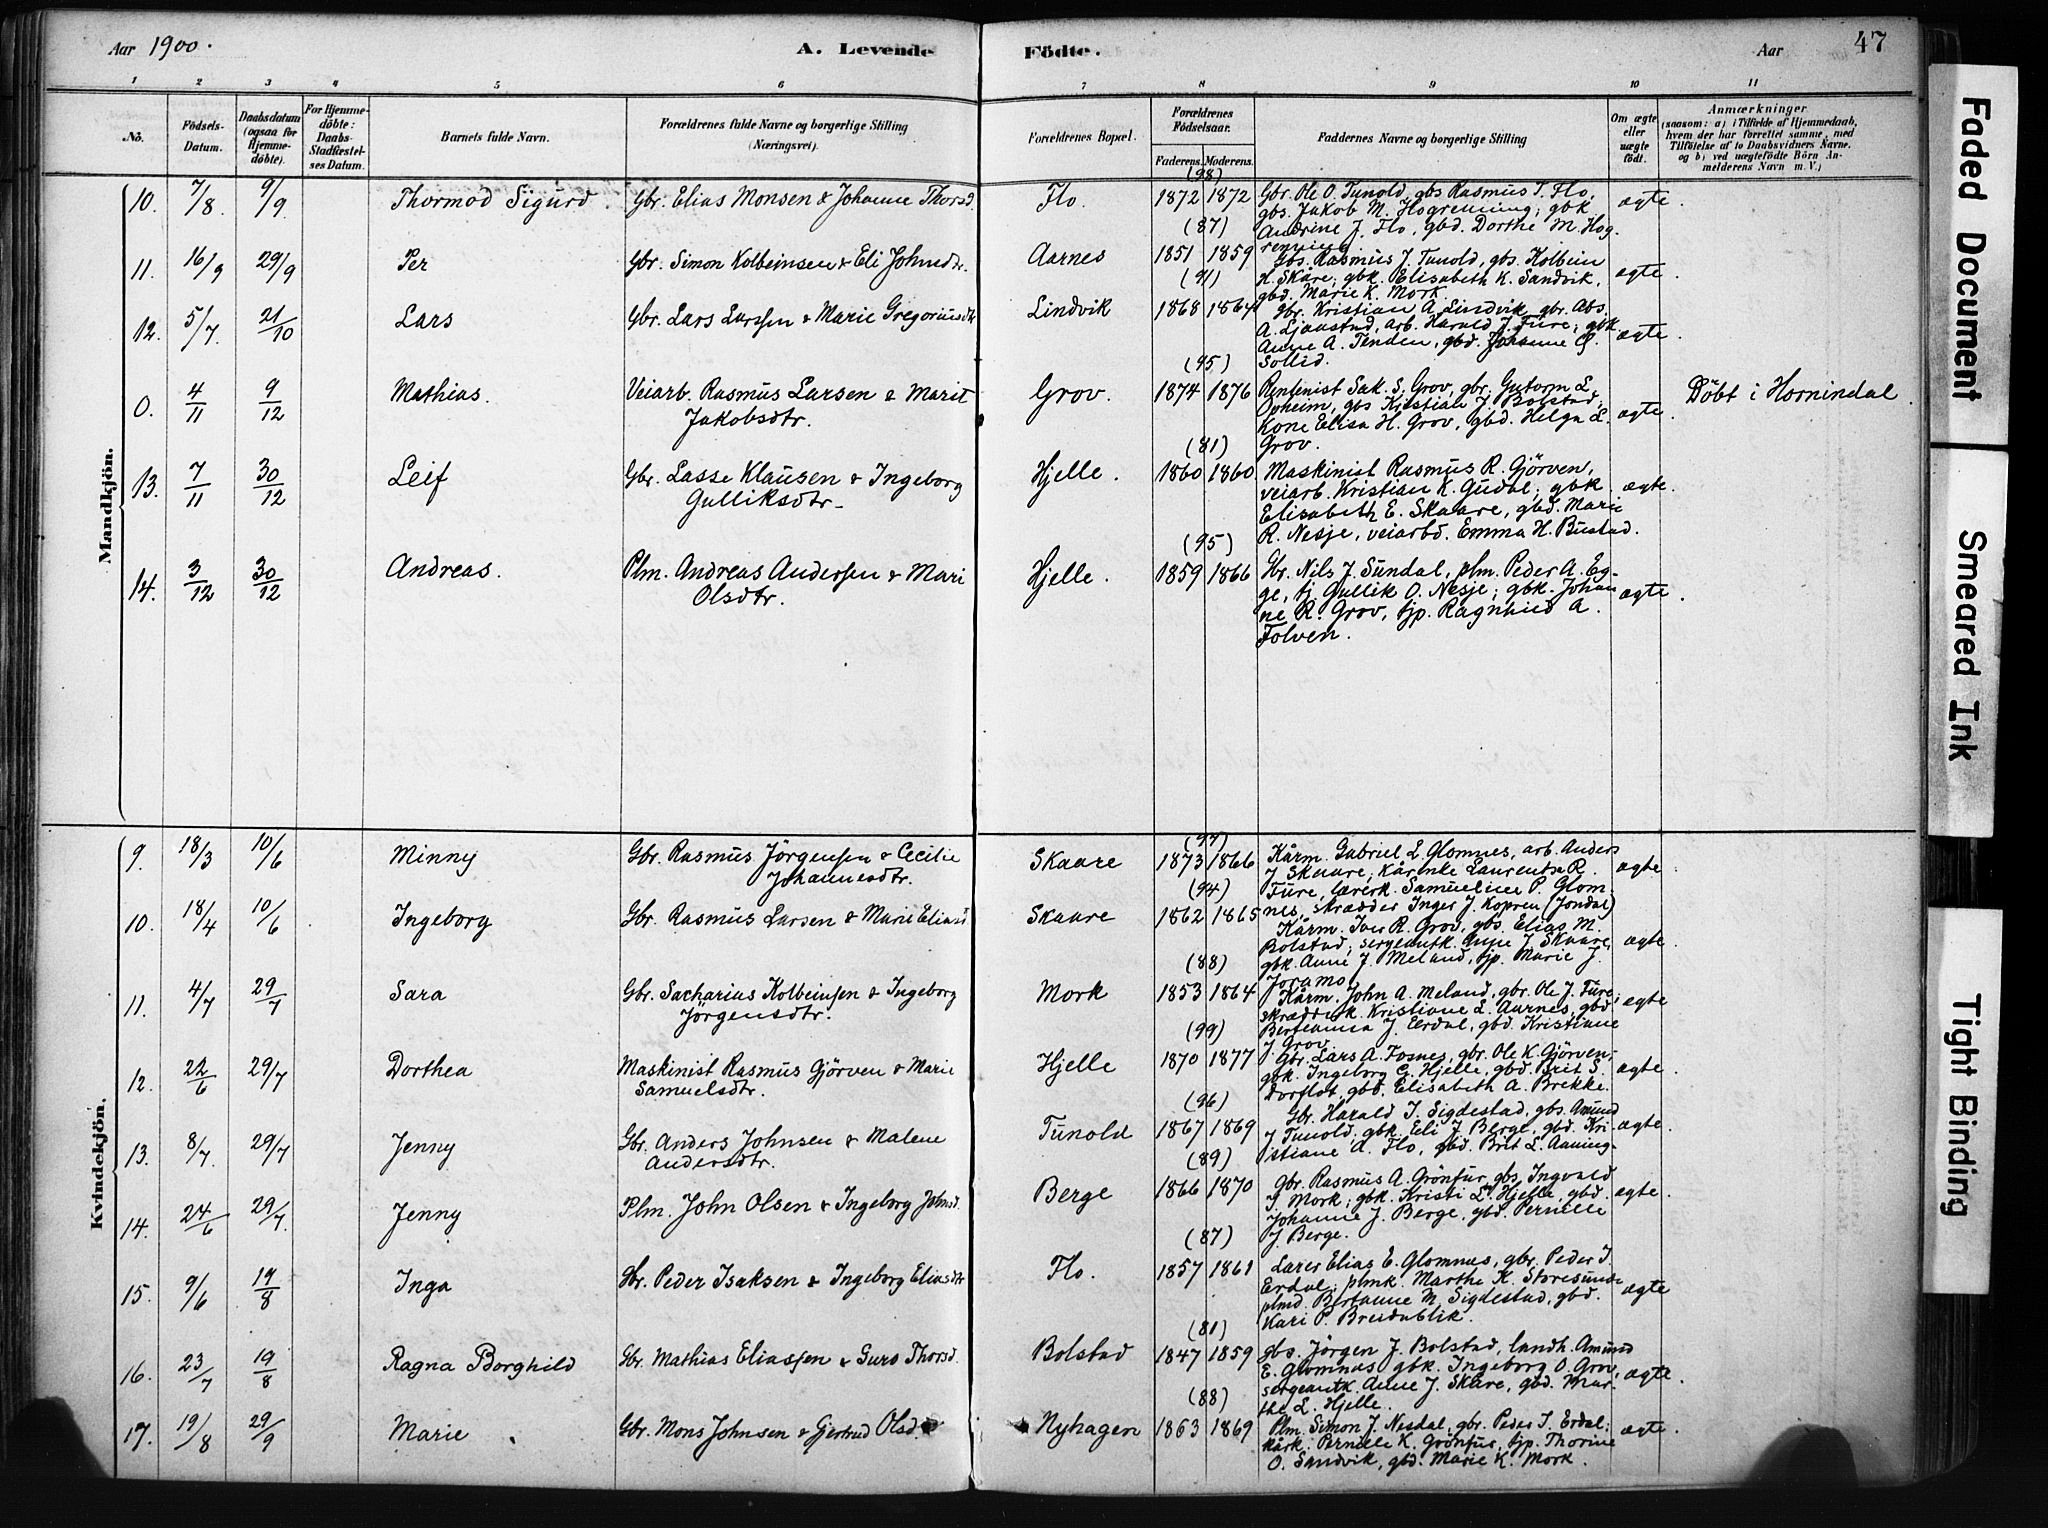 Aar 1900. A. Levende Födte. Aar 47
1 2 3 4 5 6 7 8 9 10 11
No. Födsels-Datum. Daabsdatum (ogsaa for Hjemme-döbte). For Hjemme-döbte: Daabs-Stadfæstel-ses Datum. Barnets fulde Navn. Forældrenes fulde Navne og borgerlige Stilling (Næringsvei). Forældrenes Bopæl. Forældrenes Födselsaar. Faderens. Moderens. Faddernes Navne og borgerlige Stilling Om ægte eller uægte födt. Anmærkninger (saasom: a) i Tilfælde af Hjemmedaab, hvem der har forrettet samme, med Tilföielse af to Daabsvidners Navne, og b) ved uægtefödte Börn An-melderens Navn m.V.)
Mandkjön.
(98)
10. 7/8 9/9 Thormod Sigurd. Gbr. Elias Monsen & Johanne Thorsd. Flo. 1872 1872 Gbr. Ole O. Tunold, gbs Rasmus I. Flo, ægte.
gbs. Jakob M. Hogrenning; gbk
(87) Andrine J. Flo, gbd. Dorthe M. Hog-
renning
11. 16/9 29/9 Per Gbr. Simon Kolbeinsen & Eli Johnsdtr. Aarnes 1851 1859 Gbs. Rasmus J. Tunold, gbs. Kolbein ægte.
(91) Skåre; gbk. Elisabeth K. Sandvik,
gbd. Marie K. Mork
12. 5/7. 21/10 Lars Gbr. Lars Larssen & Marie Gregoriusdtr Lindvik 1868 1864 gbr. Kristian A. Lindvik, gbr. Abs.
A. Ljaastad, arb. Harald J. Fure; gbk ægte.
Anne A. Tenden, gbd. Johanne
(95) Sollid.
0. 4/11 9/12 Mathias. Veiarb. Rasmus Larsen & Marit Grov. 1874 1876 Rentenist Sak. S. Grov, gbr. Gutorm L. Döbt i Hornindal.
Jakobsdtr. Opheim, gbs Kristian J. Bolstad, ægte.
Kone Elisa H. Grov, gbd. Helga L.
(81) Grov.
13. 7/11 30/12 Leif Gbr. Lasse Klausen & Ingeborg Hjelle. 1860 1860 Maskinist Rasmus R. Gjörven,
Gulliksdtr. veiarb. Kristian K. Gudal; gbk. ægte.
Elisabeth E. Skaare, gbd. Marie
(95) R. Nesje, veiarbd. Emma H. Bustad.
14. 3/12 30/12 Andreas. Plm. Andreas Andersen & Mari Hjelle. 1859 1866 Gbr. Nils J. Sundal, plm. Peder A. Eg-
Olsdtr. ge, tj. Gullik O. Nesje; gbk. Johan- ægte.
ne R. Grov, tjp. Ragnhild A.
Folven.
Kvindekjön.
(97)
9. 18/3 10/6 Minny Gbr. Rasmus Jörgensen & Cecilie Skaare 1873 1866 Kårm. Gabriel L. Glomnes, arb. Anders
Johannesdtr. J Skaare, Kårenke Laurentse R. ægte.
(94) Fure, lærerk. Samueline P. Glom-
nes, skrædder Inger J. Kopren (Jondal)
10. 18/4 10/6 Ingeborg Gbr. Rasmus Larsen & Marie Eliasd. Skaare 1862 1865 Kårm. Iver R. Grov, gbs. Elias M.
Bolstad; sergeantk. Anne J. Skaare, ægte.
(88) gbk. Anne J. Meland, tjp. Marie J.
Joramo
11. 4/7 29/7 Sara Gbr. Sacharias Kolbeinsen & Ingeborg Mork 1853 1864 Kårm. John A. Meland, gbr. Ole J. Fure; ægte
Jörgensdtr. skrædderk. Kristiane L. Aarnes, gbd
(99) Berteanna J. Erdal, gbd. Kristiane
J. Grov
12. 22/6 29/7 Dorthea Maskinist Rasmus Gjörven & Marie Hjelle 1870 1877 Gbr. Lars A. Fosnes, gbr. Ole K. Gjörven,
Samuelsdtr. gbk. Ingeborg G. Hjelle, gbd. Brit S. ægte.
(96) Dorflot, gbd. Elisabeth A. Brekke.
13. 8/7. 29/7 Jenny Gbr. Anders Johnsen & Malene Tunold 1867 1869 Gbr. Harald I. Sigdestad, gbs. Amund
Andersdtr. J Tunold; gbk. Eli J. Berge, gbd. Kri- ægte.
(89) stiane A. Flo, gbd. Brit L. Aaning-
14. 24/6 29/7. Jenny Plm. John Olsen & Ingeborg Johnsd. Berge 1866 1870 gbr. Rasmus A. Grönfur, gbs. Ingvald
I. Mork; gbk. Kristi L. Hjelle, gbd. ægte.
Johanne J. Berge, gbd. Pernille
(87) J Berge.
15. 9/6 19/8 Inga Gbr. Peder Isaksen & Ingeborg Eliasdtr Flo. 1857 1861 Lærer Elias E. Glomnes, gbr. Peder I.
Erdal; plmk. Marthe K. Storesunde ægte
plmd. Bertanne M. Sigdestad, gbd.
(81) Kari P. Breidablik.
16. 23/7 19/8 Ragna Borghild Gbr. Mathias Eliassen & Guro Thorsd. Bolstad 1847 1859 gbs. Jörgen J. Bolstad, landh. Amund
E. Glomnes gbk. Ingeborg O. Grov, ægte.
(88) sergeantk. Anne J. Skåre, gbd. Mar-
the L. Hjelle.
17. 19/8 29/9 Marie Gbr. Mons Johnsen & Gjertrud Olsd. Nyhagen 1863 1869 Plm. Simon J. Nesdal, gbr. Peder I. Erdal; ægte.
kårk. Pernille K. Grönfur, tjp. Thorine
O. Sandvik, gbd. Marie K. Mork.
Faded Document
Smeared Ink
Tight Binding